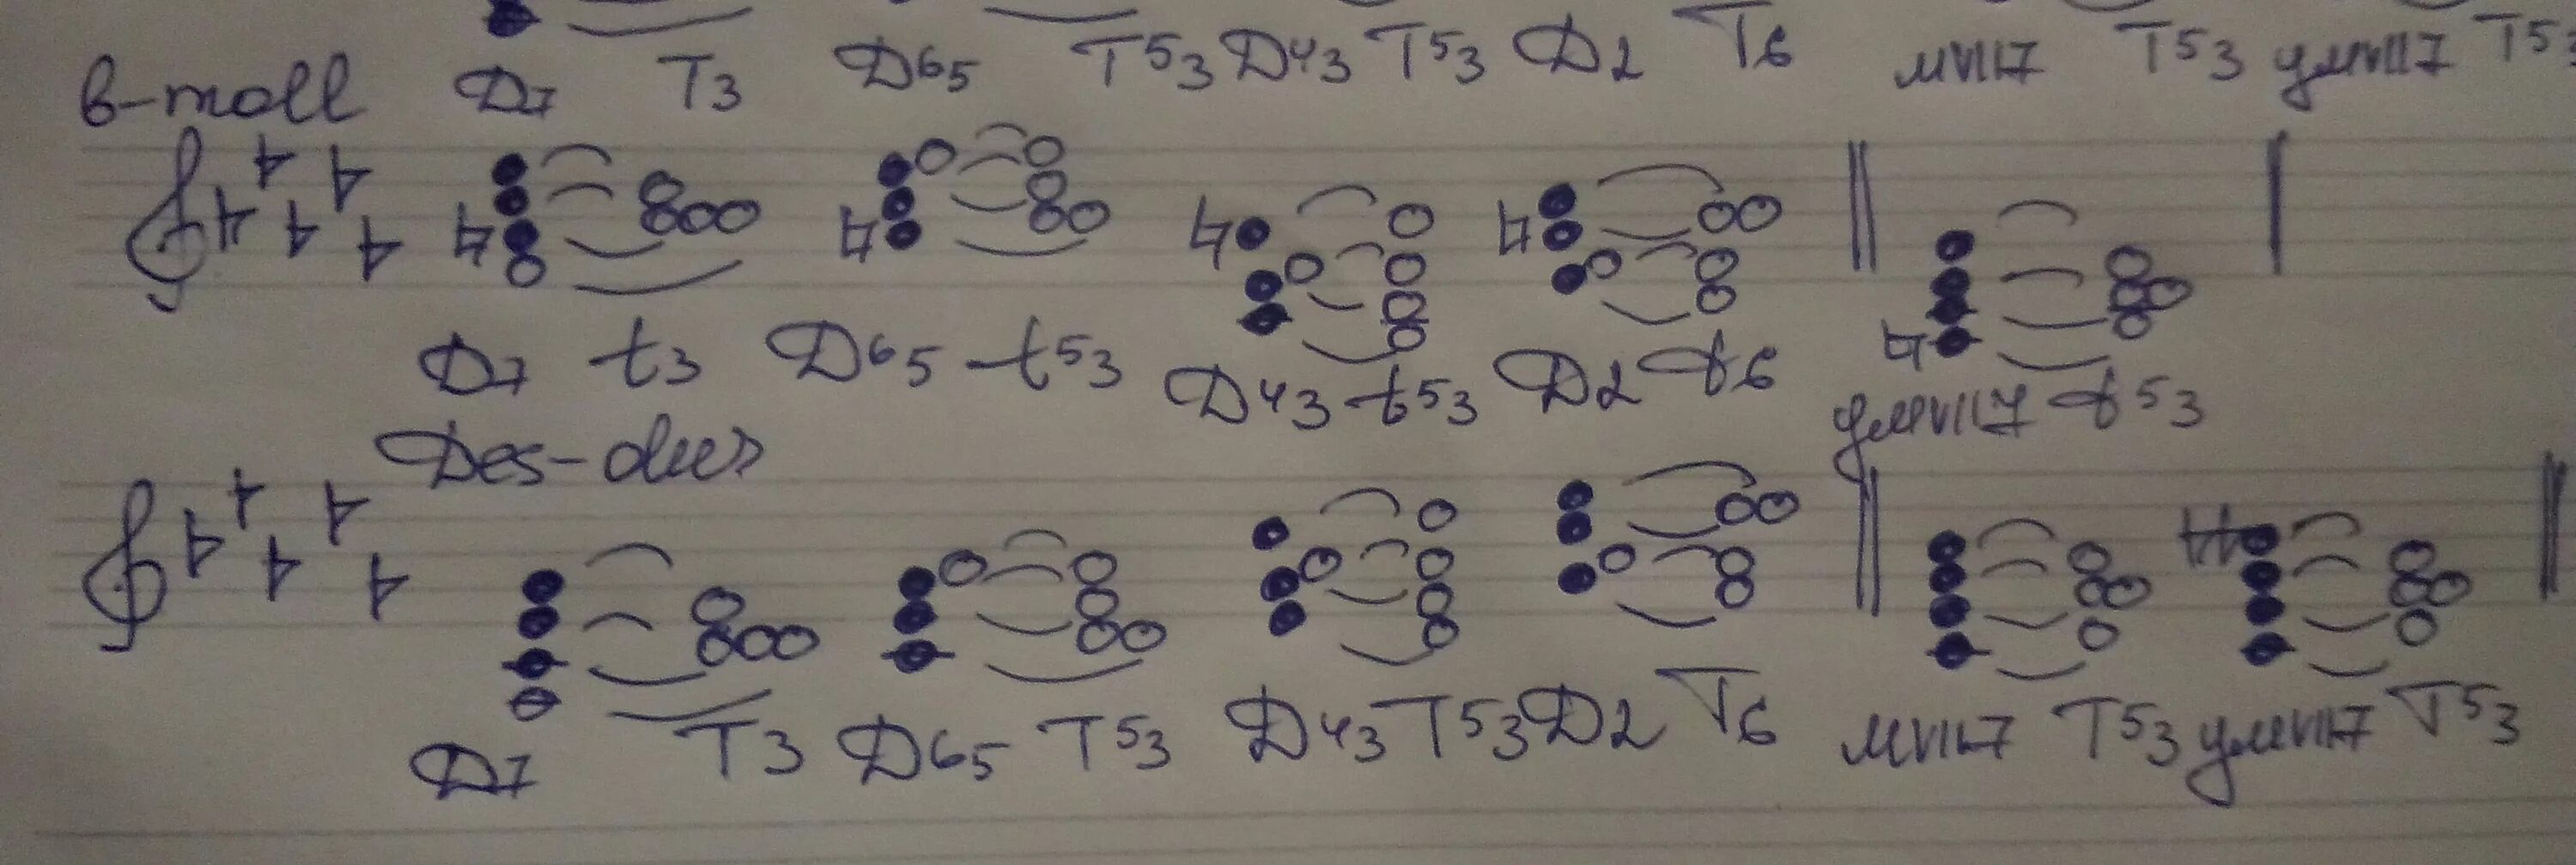 Д7 T3 Д65 T53 Д43 T53 Д2 T6 мVII7 T53 умVII7 T53
b-moll
Д7 t3 Д65 t53 Д43 t53 Д2 t6 умVII7 t53
Des-dur
Д7 T3 Д65 T53 Д43 T53 Д2 T6 мVII7 T53 умVII7 T53